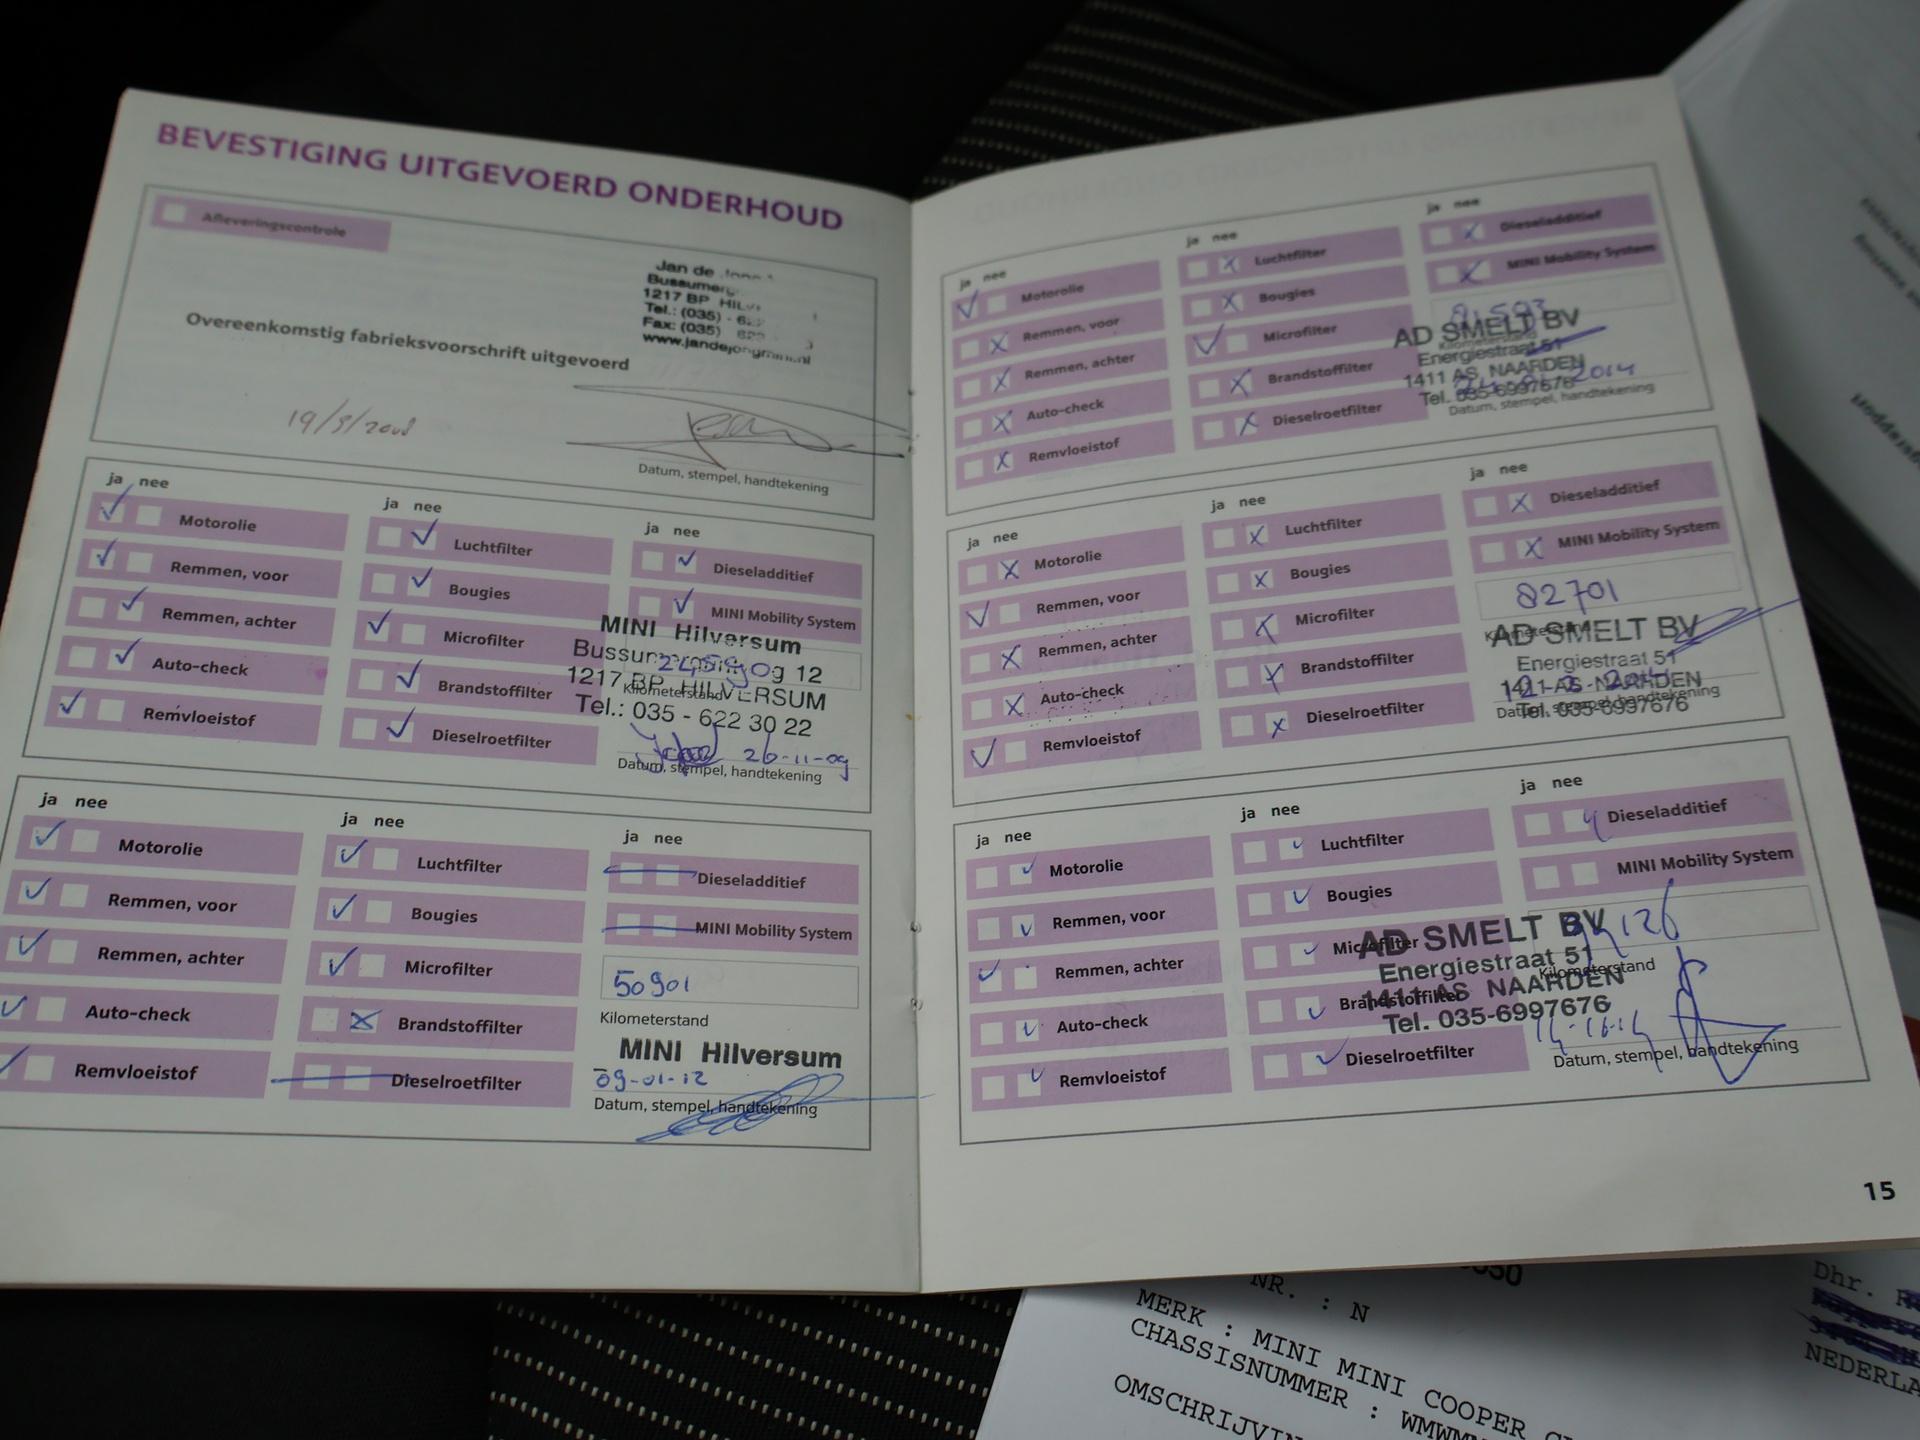 BEVESTIGING UITGEVOERD ONDERHOUD
Afleveringscontrole
Jan de
1217 BP
Tel.: (035) -
Fax: (035)
Overeenkomstig fabrieksvoorschrift uitgevoerd
Datum, stempel, handtekening
ja nee
Motorolie
Remmen, voor
Remmen, achter
Auto-check
Remvloeistof
ja nee
Luchtfilter
Bougies
Microfilter
Brandstoffilter
Dieselroetfilter
ja nee
Dieseladditief
MINI Mobility System
MINI Hilversum
12
1217 BP HILVERSUM
Kilometerstand
Tel.: 035 - 622 30 22
26-11-09
Datum, stempel, handtekening
ja nee
Motorolie
Remmen, voor
Remmen, achter
Auto-check
Remvloeistof
ja nee
Luchtfilter
Bougies
Microfilter
Brandstoffilter
Dieselroetfilter
ja nee
Dieseladditief
MINI Mobility System
50901
Kilometerstand
MINI Hilversum
09-01-12
Datum, stempel, handtekening
ja nee
Motorolie
Remmen, voor
Remmen, achter
Auto-check
Remvloeistof
ja nee
Luchtfilter
Bougies
Microfilter
Brandstoffilter
Dieselroetfilter
ja nee
Dieseladditief
MINI Mobility System
AD SMELT BV
Kilometerstand
Energiestraat 51
1411 AS NAARDEN
2014
Tel. 035-6997676
Datum, stempel, handtekening
ja nee
Motorolie
Remmen, voor
Remmen, achter
Auto-check
Remvloeistof
ja nee
Luchtfilter
Bougies
Microfilter
Brandstoffilter
Dieselroetfilter
ja nee
Dieseladditief
MINI Mobility System
82701
Kilometerstand
AD SMELT BV
Energiestraat 51
1411 AS NAARDEN
Datum, stempel, handtekening
Tel. 035-6997676
ja nee
Motorolie
Remmen, voor
Remmen, achter
Auto-check
Remvloeistof
ja nee
Luchtfilter
Bougies
Microfilter
Brandstoffilter
Dieselroetfilter
ja nee
Dieseladditief
MINI Mobility System
AD SMELT BV
Energiestraat 51
Kilometerstand
1411 AS NAARDEN
Tel. 035-6997676
Datum, stempel, handtekening
15
NR. : N
MERK : MINI MINI COOPER
CHASSISNUMMER :
Dhr.